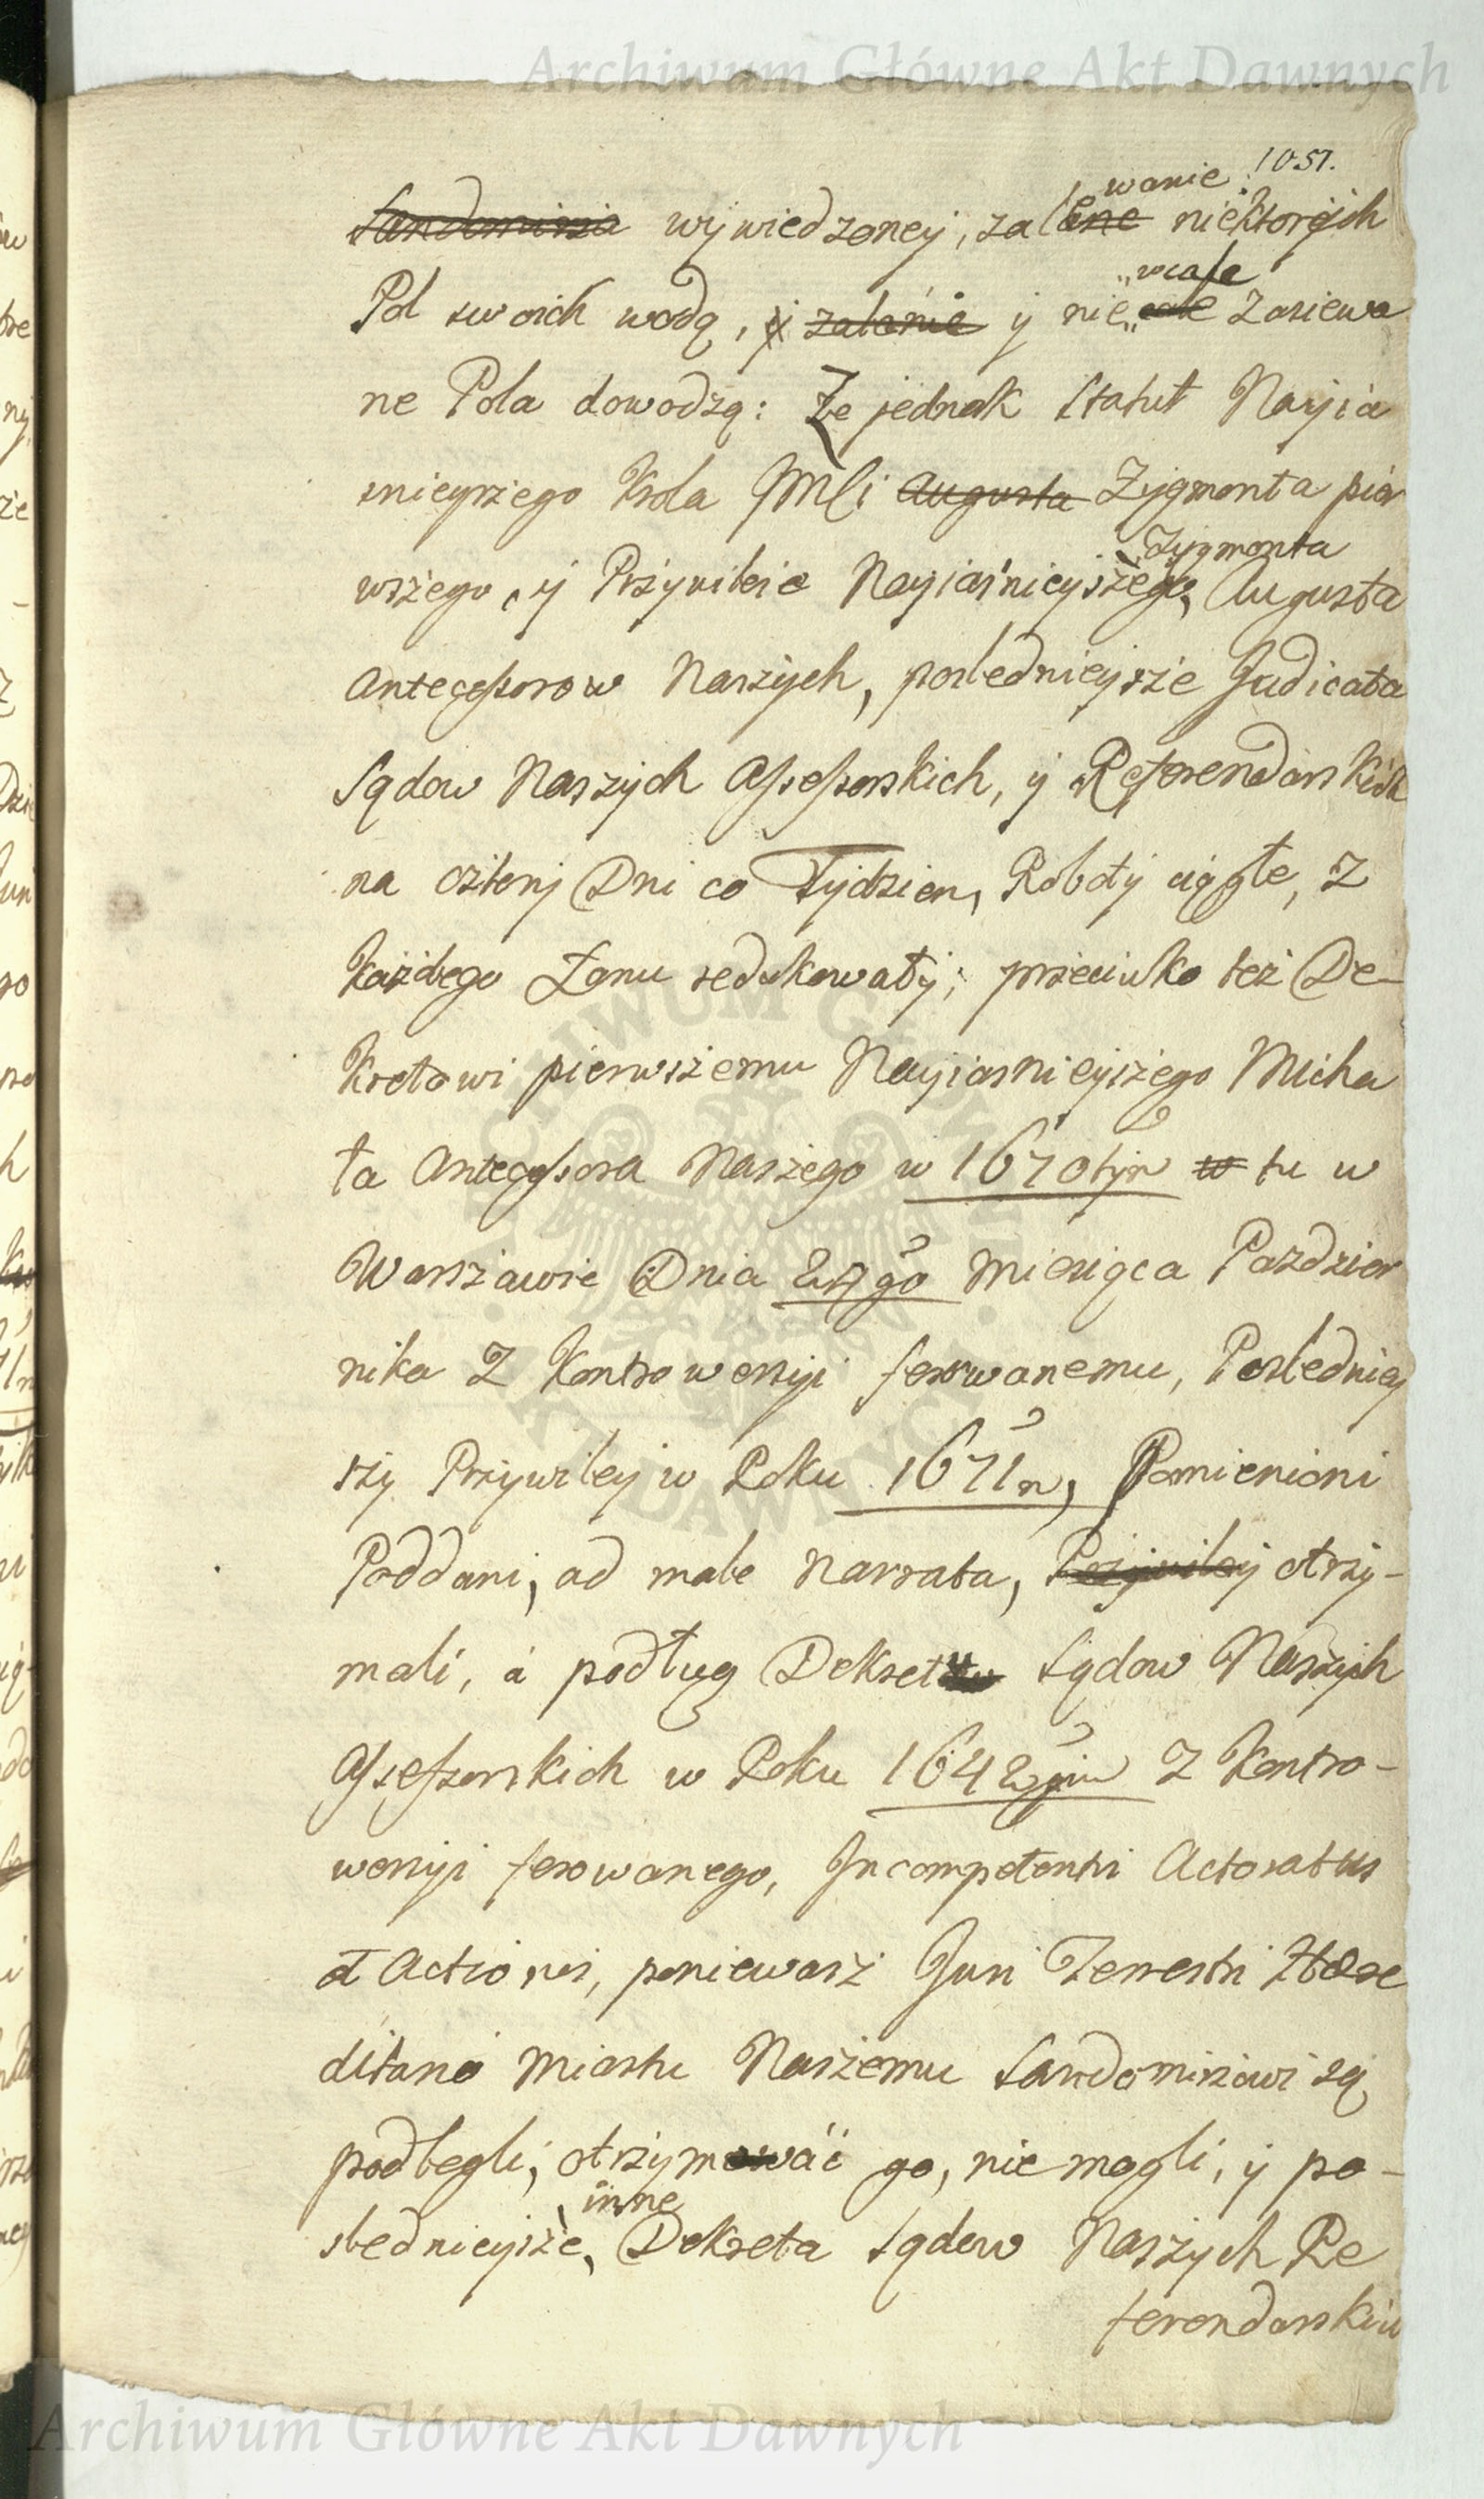 Archiwum Główne Akt Dawnych
1051.
wanie
Sandomirza wywiedzoney, zalane niektorych
wcale
Pol swoich wodą, y zalanie y nie cale zasiewa
ne Pola dowodzą: Że jednak Statut Nayia
snieyszego Krola JMCi Augusta Zygmonta pier
Zygmonta
wszego, y Przywileie Nayiaśnieyszego, Augusta
Antecessorow Naszych, posledniejsze Judicata
Sądow Naszych Assessorskich, y Referendarskich
na cztery Dni co Tydzien, Roboty ciągłe, z
każdego Łanu redukowały; przeciwko też De-
kretowi pierwszemu Nayiasnieyszego Micha
ła Antecessora Naszego w 1670tym w tu w
Warszawie Dnia 24go Miesiąca Pazdzier
nika z Kontrowersyi ferowanemu, Posledniey
szy Przywiley w Roku 1671m, Pomienioni
Poddani, ad male narrata, Przywiley otrzy-
mali, a podług Dekretu Sądow Naszych
Assessorskich w Roku 1642gim z Kontro-
wersyi ferowanego, Incompetentni Actoratus
et Actiones, poniewasz Juri Terrestri Haere
ditano Miastu Naszemu Sandomirzowi są
podlegli, otrzymować go, nie mogli, y po-
inne
sledniejsze, Dekreta Sądow Naszych Re
ferendarskich
ARCHIWUM GŁÓWNE AKT DAWNYCH
Archiwum Główne Akt Dawnych